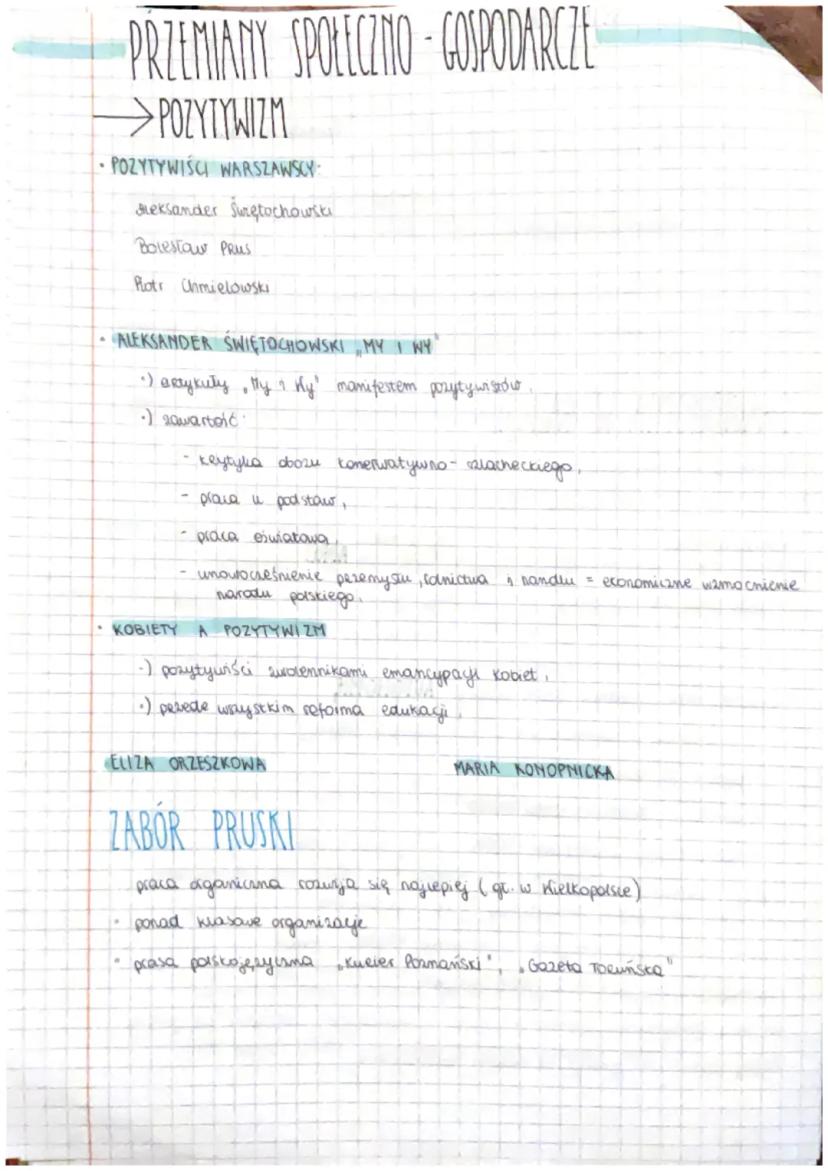 PRZEMIANY SPOŁECZNO - GOSPODARCZE
→ POZYTYWIZM
• POZYTYWIŚCI WARSZAWSCY:
Aleksander Świętochowski
Bolesław Prus
Piotr Chmielowski
• ALEKSANDER ŚWIĘTOCHOWSKI „MY I WY"
•) artykuły „My i Wy" manifestem pozytywistów.
•) zawartość:
- krytyka obozu konserwatywno - szlacheckiego,
- praca u podstaw,
- praca oświatowa,
- unowocześnienie przemysłu, rolnictwa i handlu = ekonomiczne wzmocnienie
narodu polskiego.
• KOBIETY A POZYTYWIZM
•) pozytywiści zwolennikami emancypacji kobiet,
•) przede wszystkim reforma edukacji,
ELIZA ORZESZKOWA MARIA KONOPNICKA
ZABÓR PRUSKI
praca organiczna rozwija się najlepiej (gł. w Wielkopolsce)
• ponad klasowe organizacje
• prasa polskojęzyczna „Kurier Poznański", „Gazeta Toruńska"